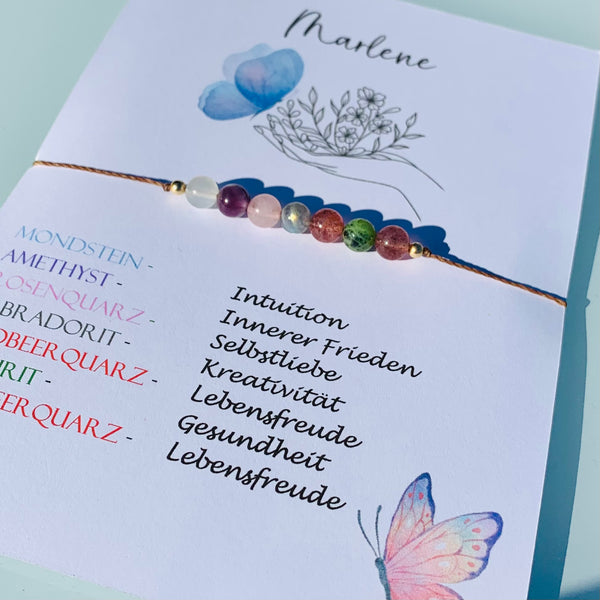 Marlene
MONDSTEIN - Intuition
AMETHYST - Innerer Frieden
ROSENQUARZ - Selbstliebe
BRADORIT - Kreativität
DBEERQUARZ - Lebensfreude
RIT - Gesundheit
EERQUARZ - Lebensfreude